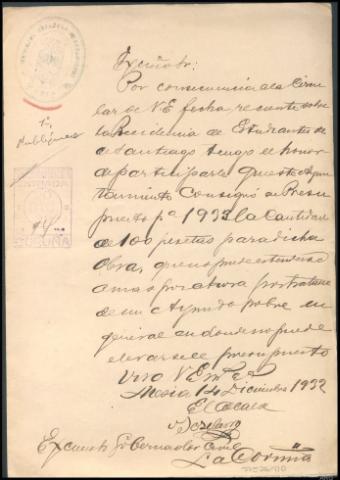 Excmo Sr:
Por consecuencia a la Circu
lar de V E fecha, reciente sobre
la Residencia de Estudiantes de
Santiago tengo el honor
de participarle que este Ayun
tamiento Consignó en Presu
puesto pª 1933 la Cantidad
de 100 pesetas para dicha
Obra, que no puede extenderse
a mas por ahora por tratarse
de un Ayunto pobre en
general en donde no puede
elevarse el presupuesto
Viva V E ms as
Mesia 14 Diciembre 1932
El Alcalde
Excmo Sr Gobernador Civil
La Coruña
ENTRADA
CORUÑA